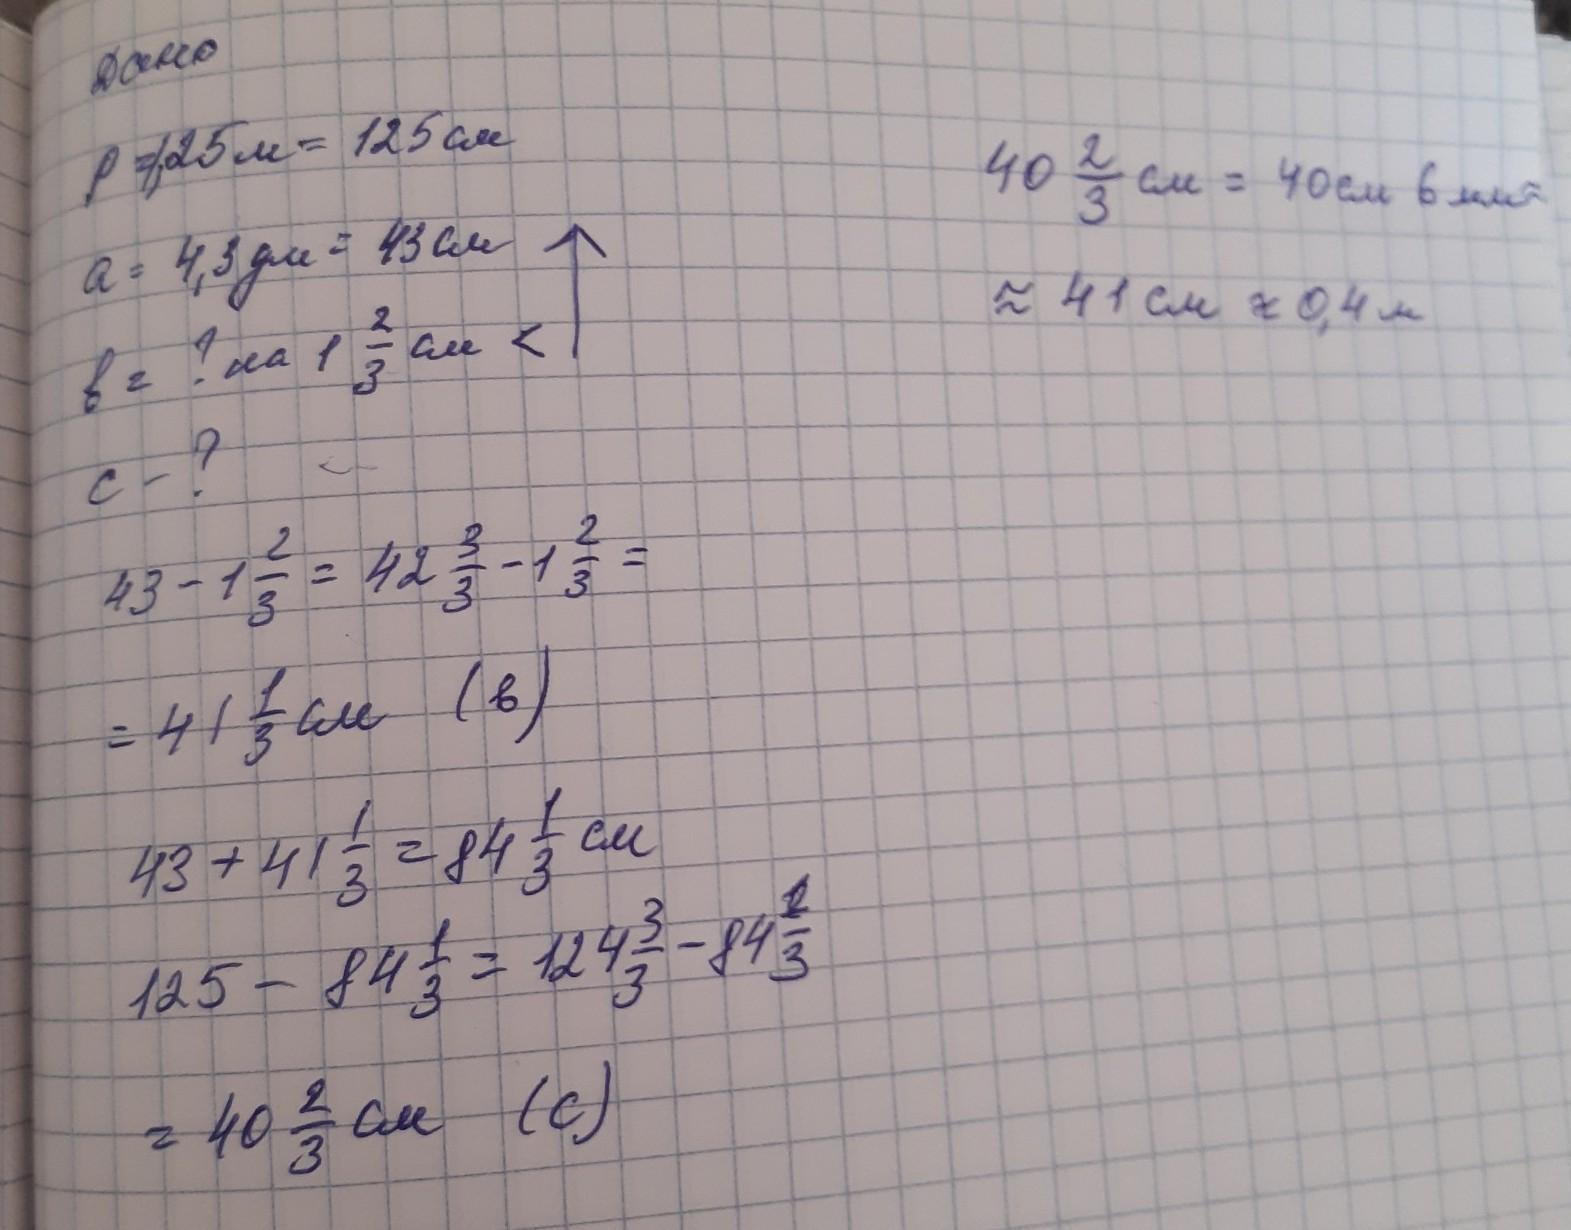 Дано
P = 1,25 м = 125 см
a = 4,3 дм = 43 см
в = ? на 1 2/3 см <
c - ?
43 - 1 2/3 = 42 3/3 - 1 2/3 =
= 41 1/3 см (в)
43 + 41 1/3 = 84 1/3 см
125 - 84 1/3 = 124 3/3 - 84 1/3
= 40 2/3 см (c)
40 2/3 см = 40 см 6 мм =
≈ 41 см ≈ 0,4 м